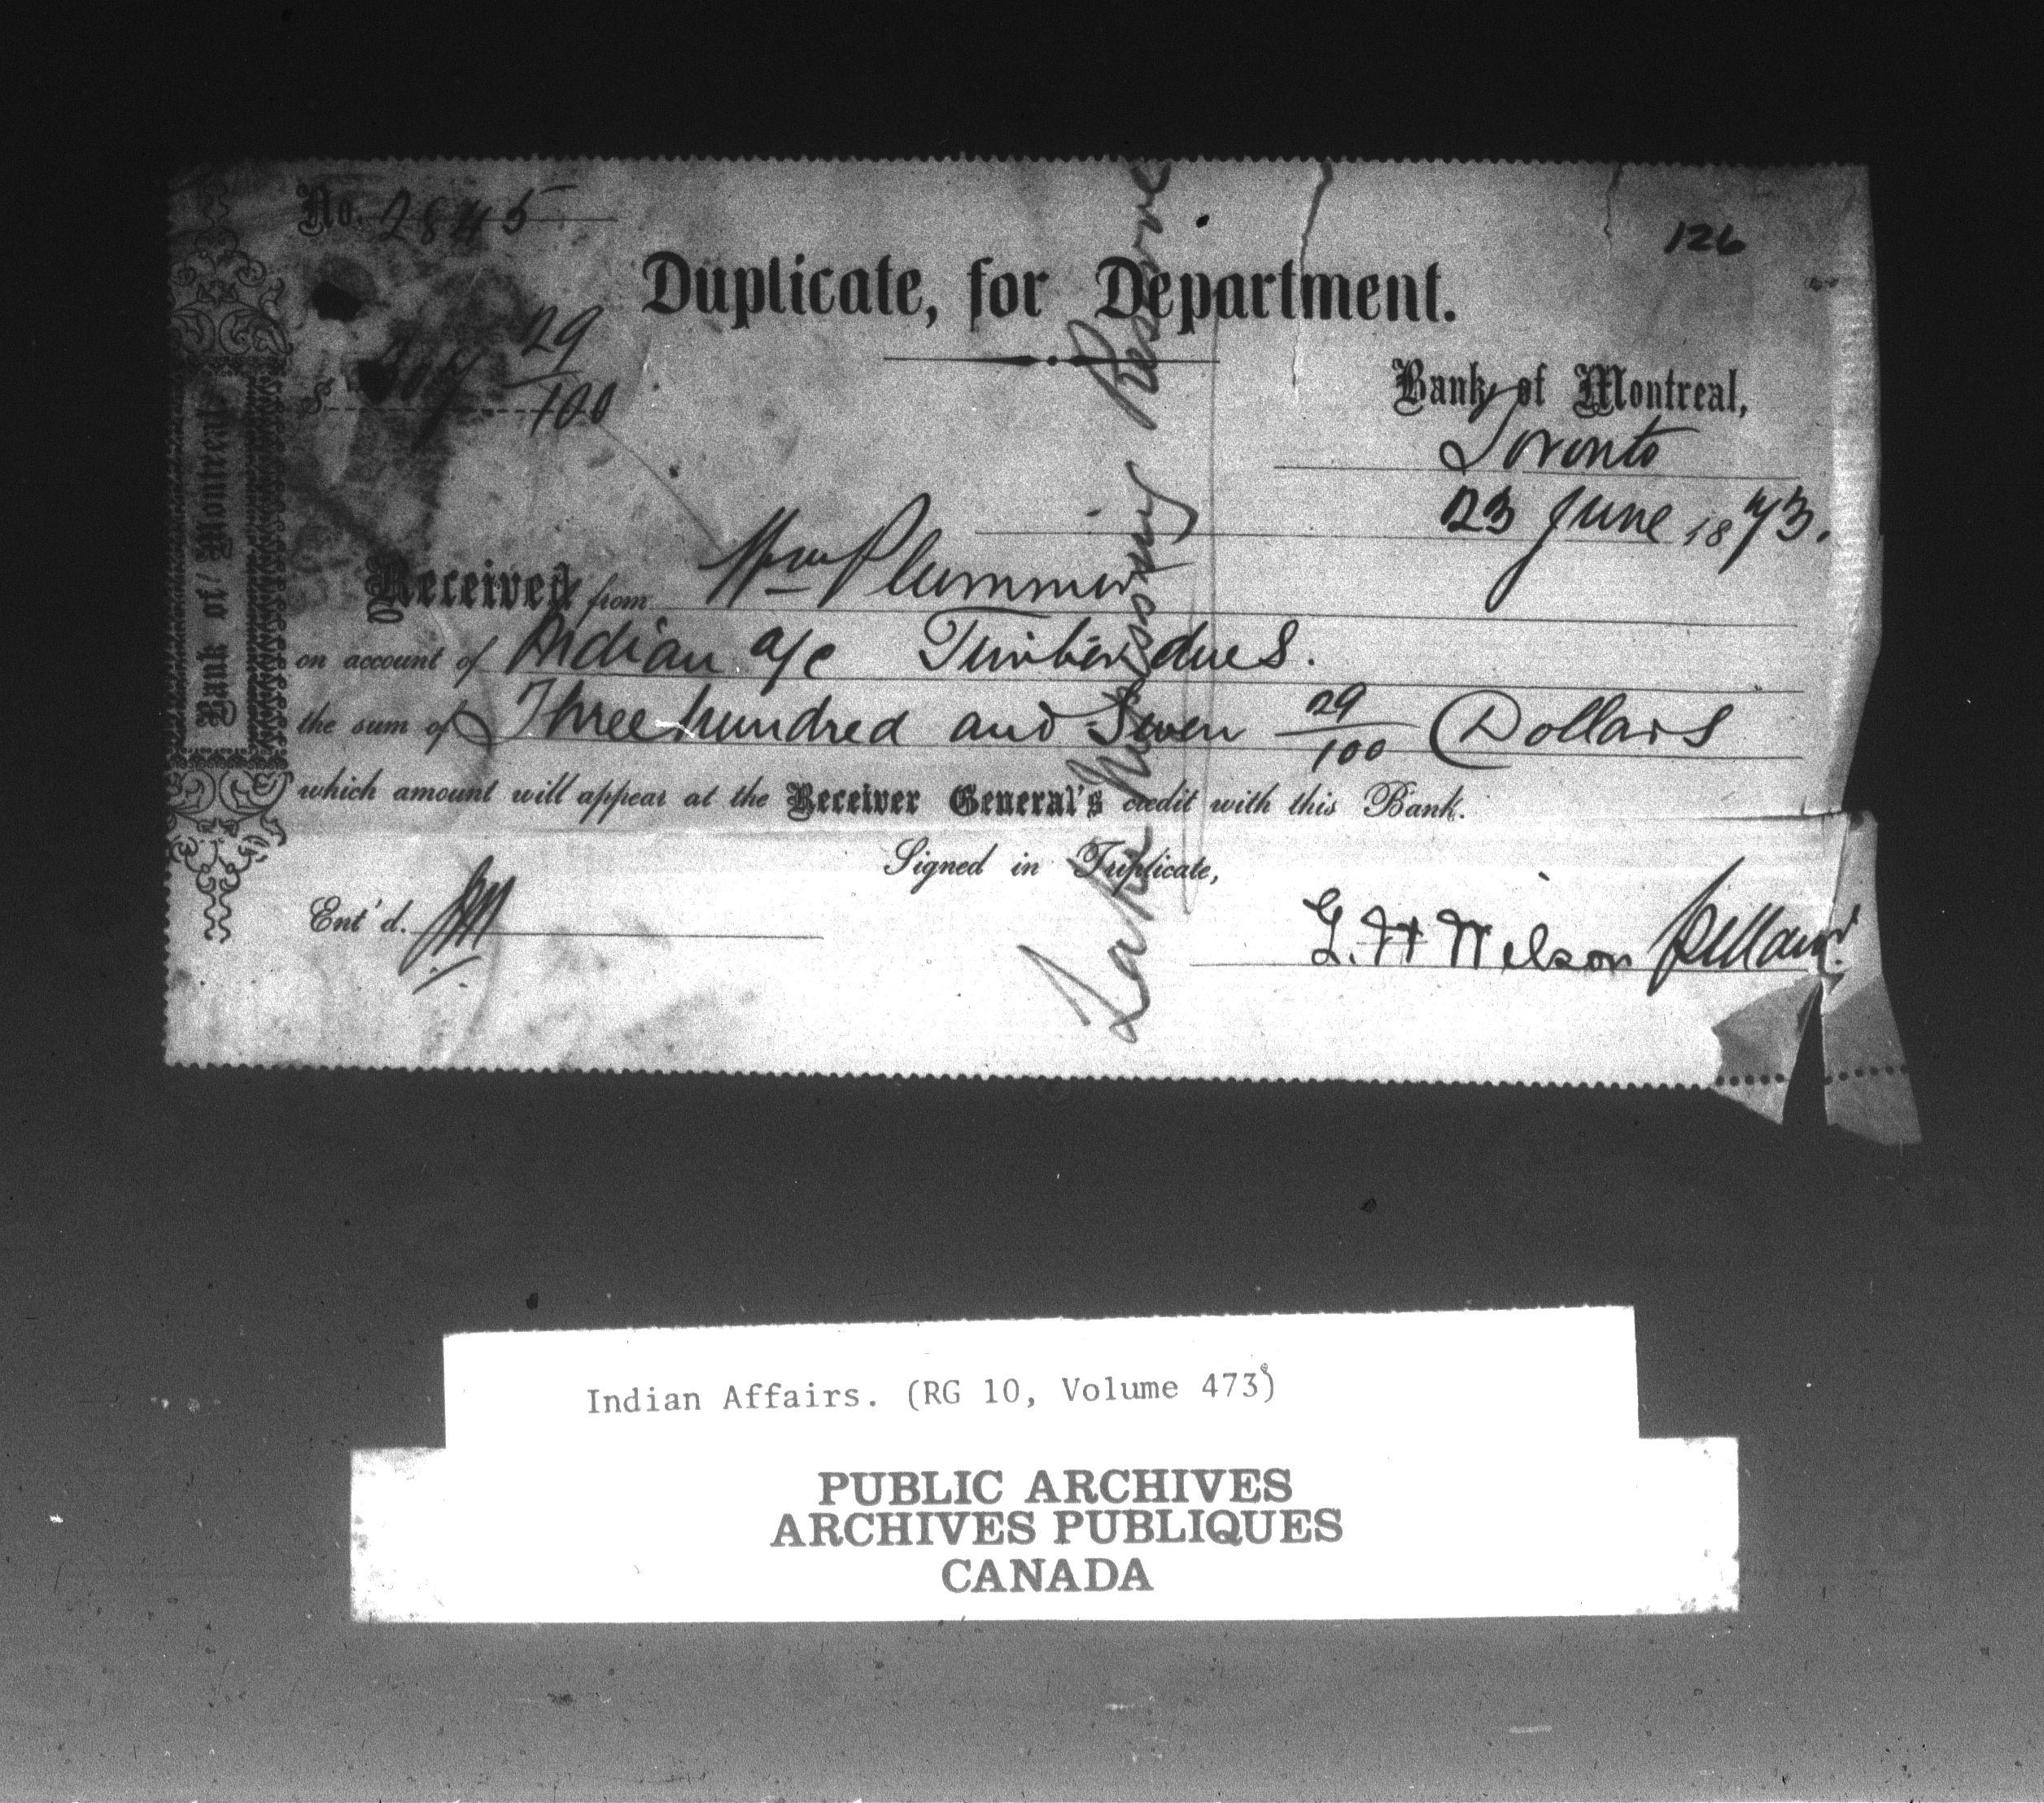 No. 2845
126
Duplicate, for Department.
$ 307 29/100
Bank of Montreal,
Toronto
23 June 1873.
Received from Wm Plummer
on account of Indian a/c Timber dues.
the sum of Three hundred and Seven 29/100 Dollars
which amount will appear at the Receiver General's credit with this Bank.
Signed in Triplicate,
Ent'd.
G. H Wilson
Bank of Montreal
Lake Nipissing Reserve
Indian Affairs. (RG 10, Volume 473)
PUBLIC ARCHIVES
ARCHIVES PUBLIQUES
CANADA